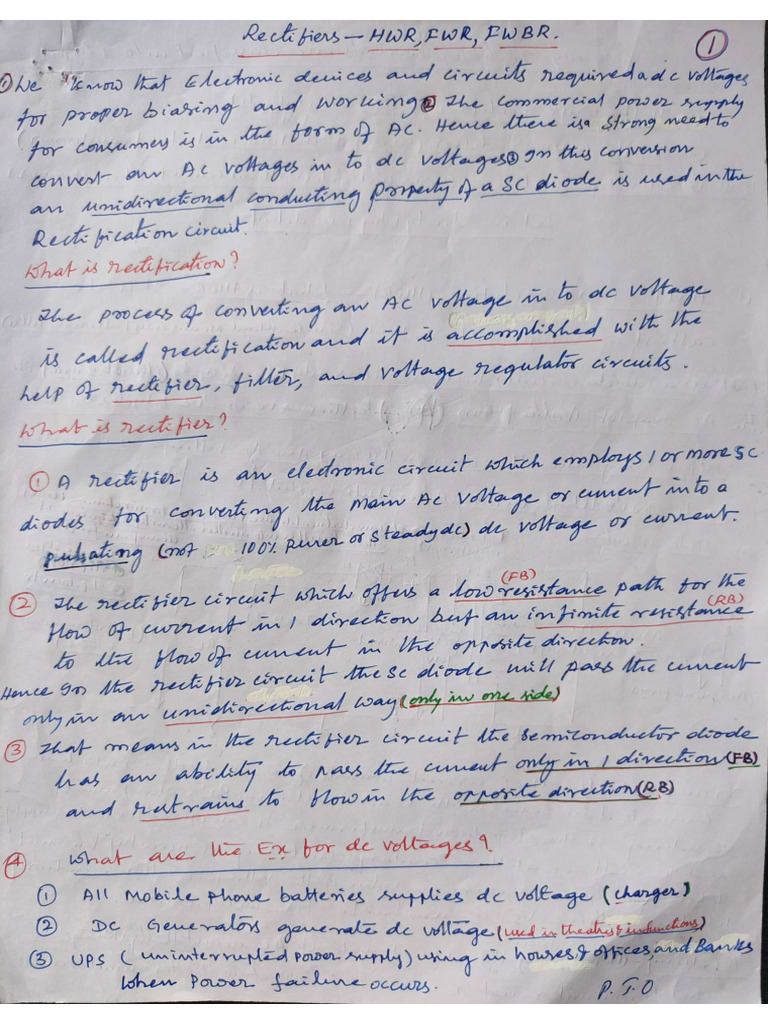 Rectifiers — HWR, FWR, FWBR.
1
① We know that Electronic devices and circuits required a dc voltages
for proper biasing and working ② The commercial power supply
for consumers is in the form of AC. Hence there is a strong need to
convert an AC voltages in to dc voltages ③ In this conversion
an unidirectional conducting property of a SC diode is used in the
Rectification circuit.
What is rectification?
The process of converting an AC voltage in to dc voltage
is called rectification and it is accomplished with the
help of rectifier, filter, and voltage regulator circuits.
What is rectifier?
① A rectifier is an electronic circuit which employs 1 or more SC
diodes for converting the main AC voltage or current into a
pulsating (not 100% purer or steady dc) dc voltage or current.
(FB)
② The rectifier circuit which offers a low resistance path for the
(RB)
flow of current in 1 direction but an infinite resistance
to the flow of current in the opposite direction.
Hence In the rectifier circuit the SC diode will pass the current
only in an unidirectional way (only in one side)
③ That means in the rectifier circuit the semiconductor diode
has an ability to pass the current only in 1 direction (FB)
and restrains to flow in the opposite direction (RB)
④ What are the Ex for dc voltages?
① All Mobile phone batteries supplies dc voltage (charger)
② DC Generators generate dc voltage (used in theatres & in functions)
③ UPS (uninterrupted power supply) using in houses & offices, and Banks
When Power failure occurs.
P.T.O